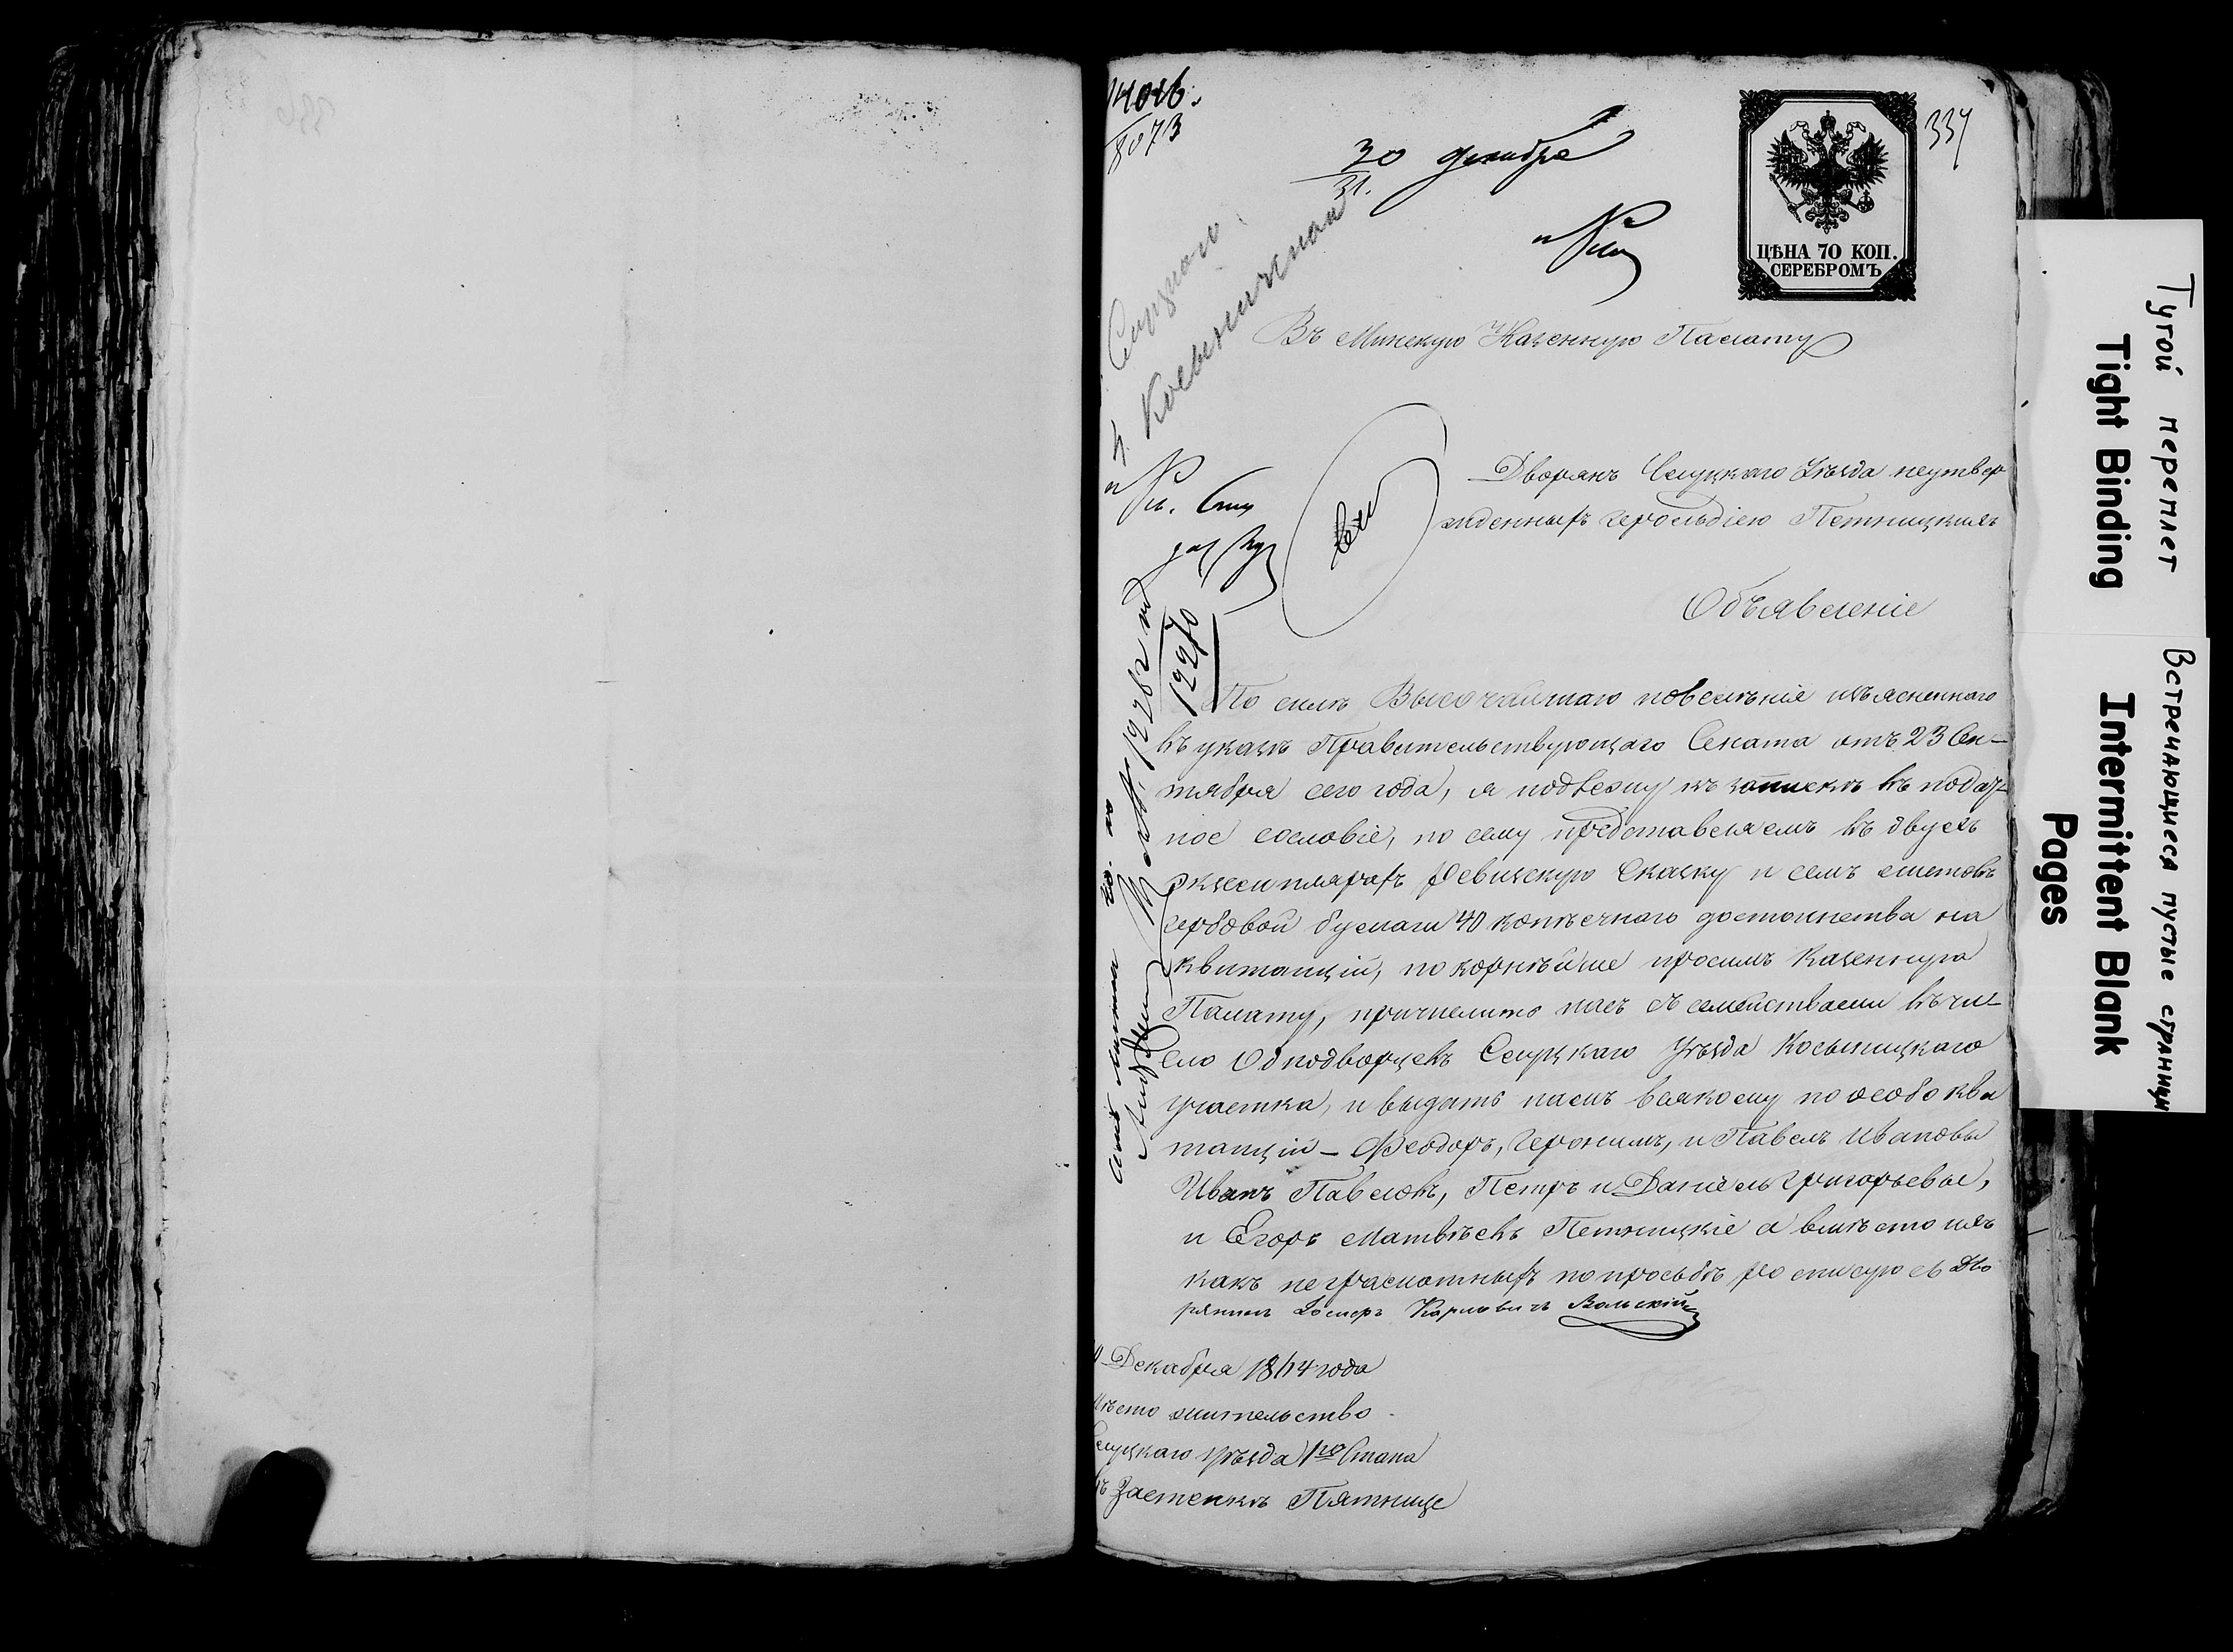 14016.
8073
30 декабря
31.
337
ЦѢНА 70 КОП.
СЕРЕБРОМЪ
Слуцкаго
Косыничская
Въ Минскую Казенную Палату
Дворянъ Слуцкаго Уѣзда неутвер
жденныхъ Герольдіею Петницкихъ
Объявленіе
12270
По силѣ Высочайшаго повелѣніе изъясненнаго
въ указѣ Правительствующаго Сената отъ 23 Сен-
тября сего года, я подлежу къ запискѣ въ подат-
ное сословіе, по сему представляемъ въ двухъ
экземплярахъ Ревизскую Сказку и семъ листовъ
гербовой бумаги 40 копѣечнаго достоинства на
квитанціи, покорнѣйше просимъ Казенную
Палату, причислить насъ съ семействами въ чи-
сло Однодворцевъ Слуцкаго Уѣзда Косыницкаго
участка, и выдать намъ всякому по особо кви
танціи – Феодоръ, Геронимъ, и Павелъ Ивановы
Иванъ Павловъ, Петръ и Даніель Григорьевы,
и Егоръ Матвѣевъ Петницкіе а вмѣсто ихъ
какъ неграмотныхъ по просьбѣ росписуюсь Дво
рянинъ Карловичъ Вольскій
Декабря 1864 года
Мѣсто жительство
Слуцкаго уѣзда 1го Стана
въ Застенкѣ Пятнице
Тугой переплет
Tight Binding
Встречающиеся пустые страницы
Intermittent Blank
Pages